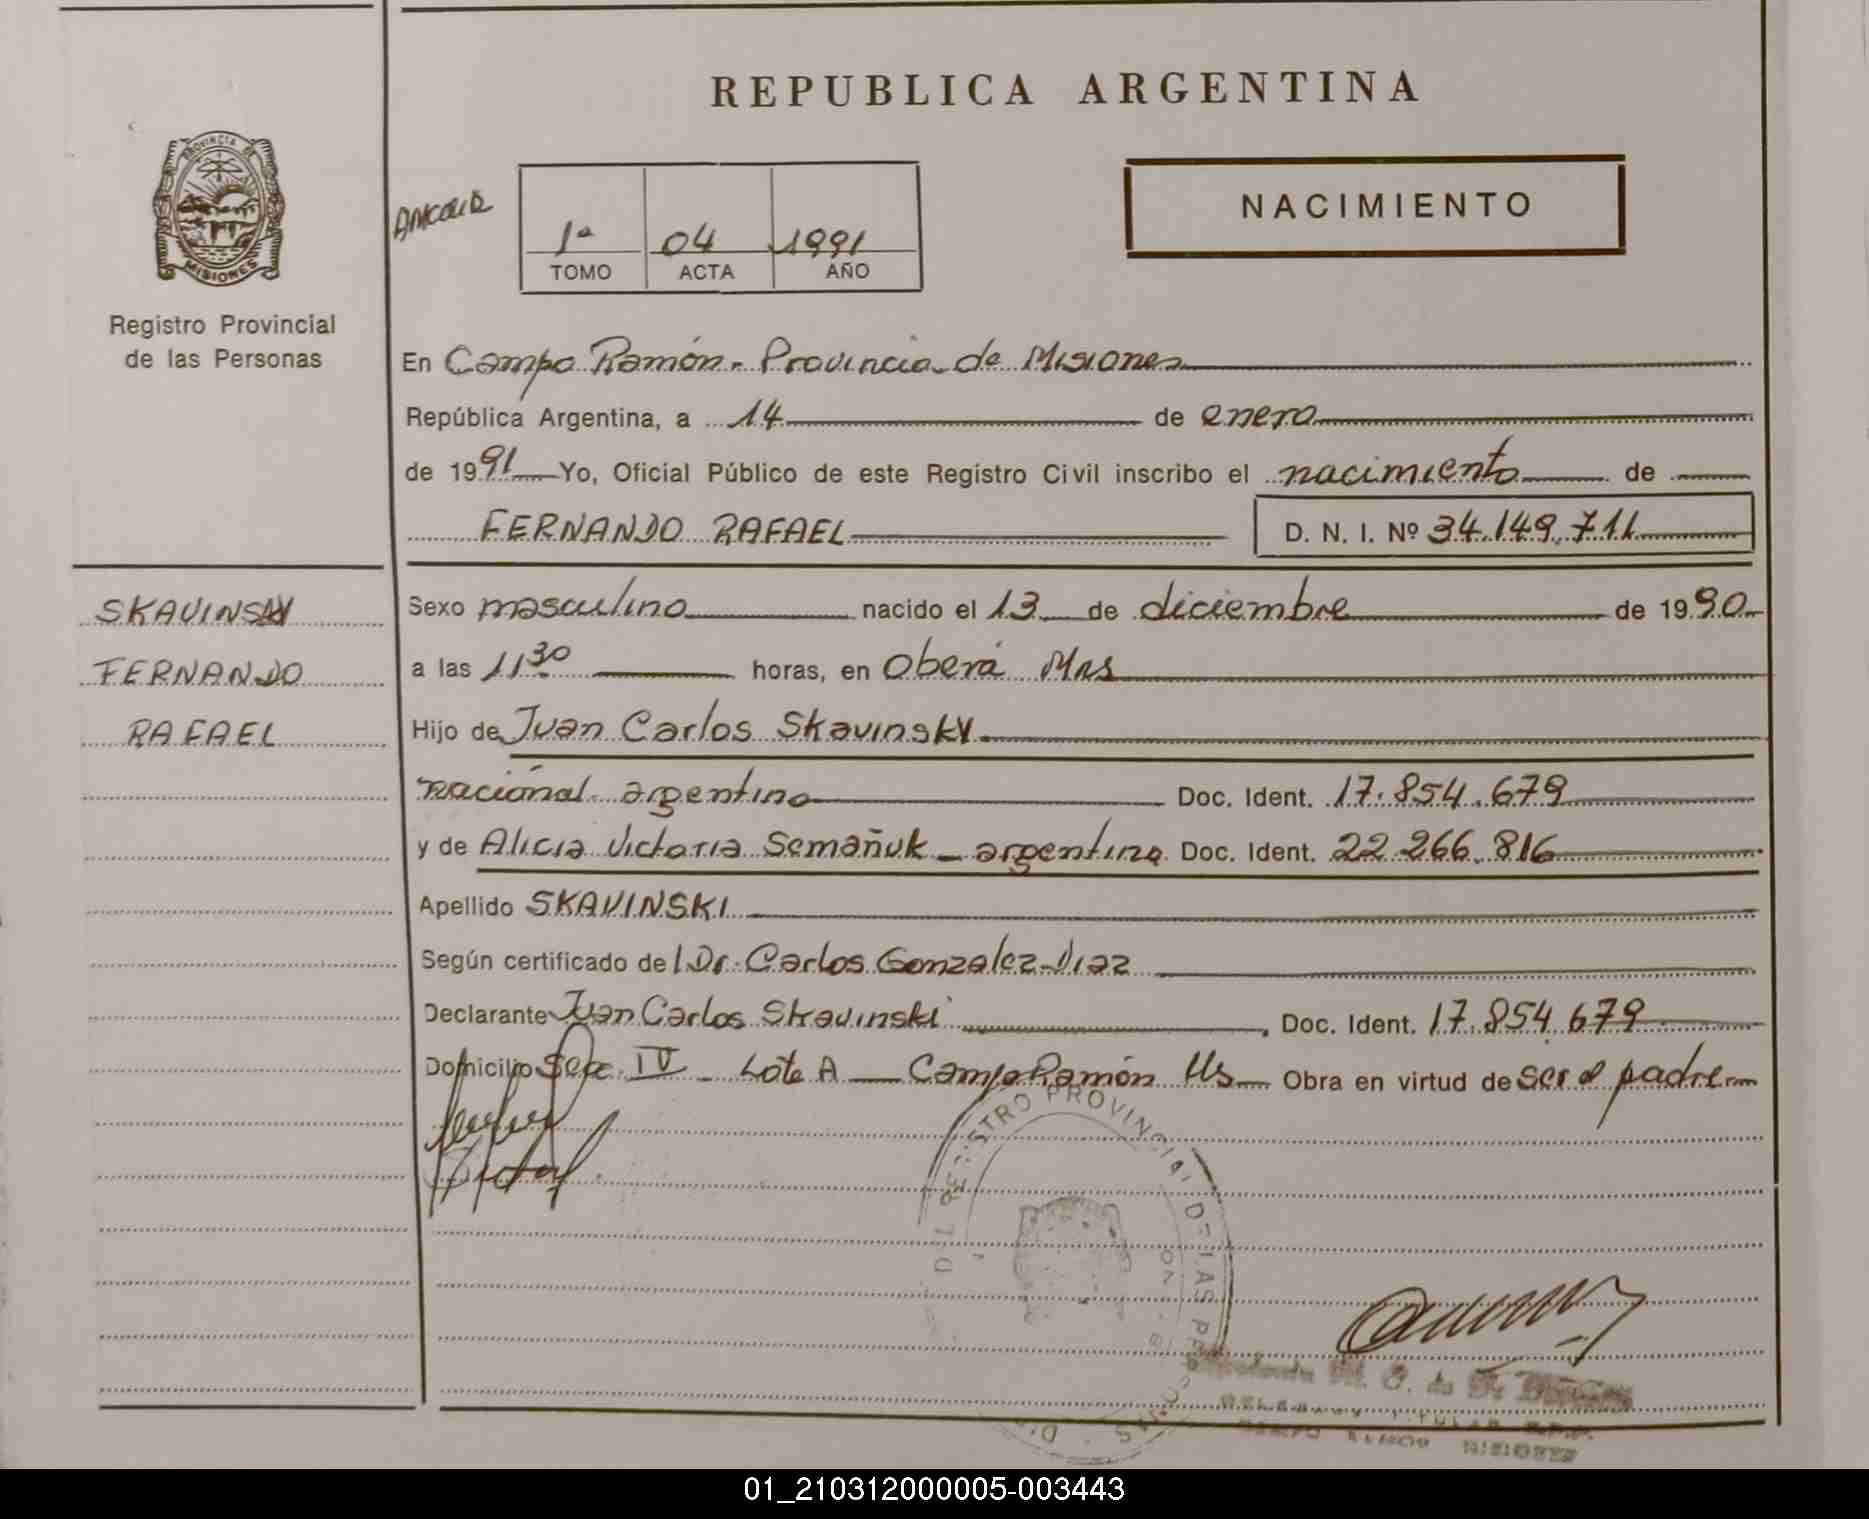 REPUBLICA ARGENTINA
PROVINCIA DE
MISIONES
Registro Provincial
de las Personas
1a 04 1991
TOMO ACTA AÑO
NACIMIENTO
En Campo Ramón - Provincia de Misiones
República Argentina, a 14 de enero
de 1991 Yo, Oficial Público de este Registro Civil inscribo el nacimiento de
FERNANDO RAFAEL D. N. I. Nº 34.149.711
SKAVINSKY
FERNANDO
RAFAEL
Sexo masculino nacido el 13 de diciembre de 1990
a las 11:30 horas, en Oberá Mns
Hijo de Juan Carlos Skavinsky
nacional argentino Doc. Ident. 17.854.679
y de Alicia Victoria Semañuk - argentina Doc. Ident. 22.266.816
Apellido SKAVINSKI
Según certificado del Dr. Carlos Gonzalez Diaz
Declarante Juan Carlos Skavinski Doc. Ident. 17.854.679
Domicilio Secc. IV - Lote A - Campo Ramón Ms Obra en virtud de ser el padre
REGISTRO PROVINCIAL DE LAS PERSONAS
01_210312000005-003443